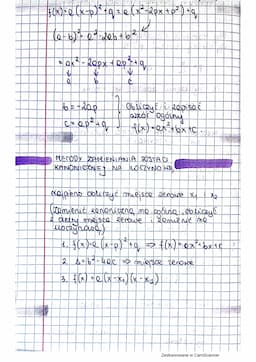 f(x)=a(x-p)²+q = a(x²-2px+p²)+q
(a-b)² = a²-2ab+b²
= ax² - 2apx + ap² + q
a b c
b = -2ap
c = ap² + q
Obliczyć i zapisać
wzór ogólny
f(x) = ax² + bx + c
METODY ZAMIENIANIA POSTACI
KANONICZNEJ NA ILOCZYNOWĄ
Najpierw obliczyć miejsca zerowe x₁ i x₂
(Zamienić kanoniczną na ogólną, obliczyć
z delty miejsca zerowe i zamienić na
iloczynową)
1. f(x)=a(x-p)²+q ⇒ f(x)=ax²+bx+c
2. Δ=b²-4ac ⇒ miejsca zerowe
3. f(x)=a(x-x₁)(x-x₂)
Zeskanowane w CamScanner